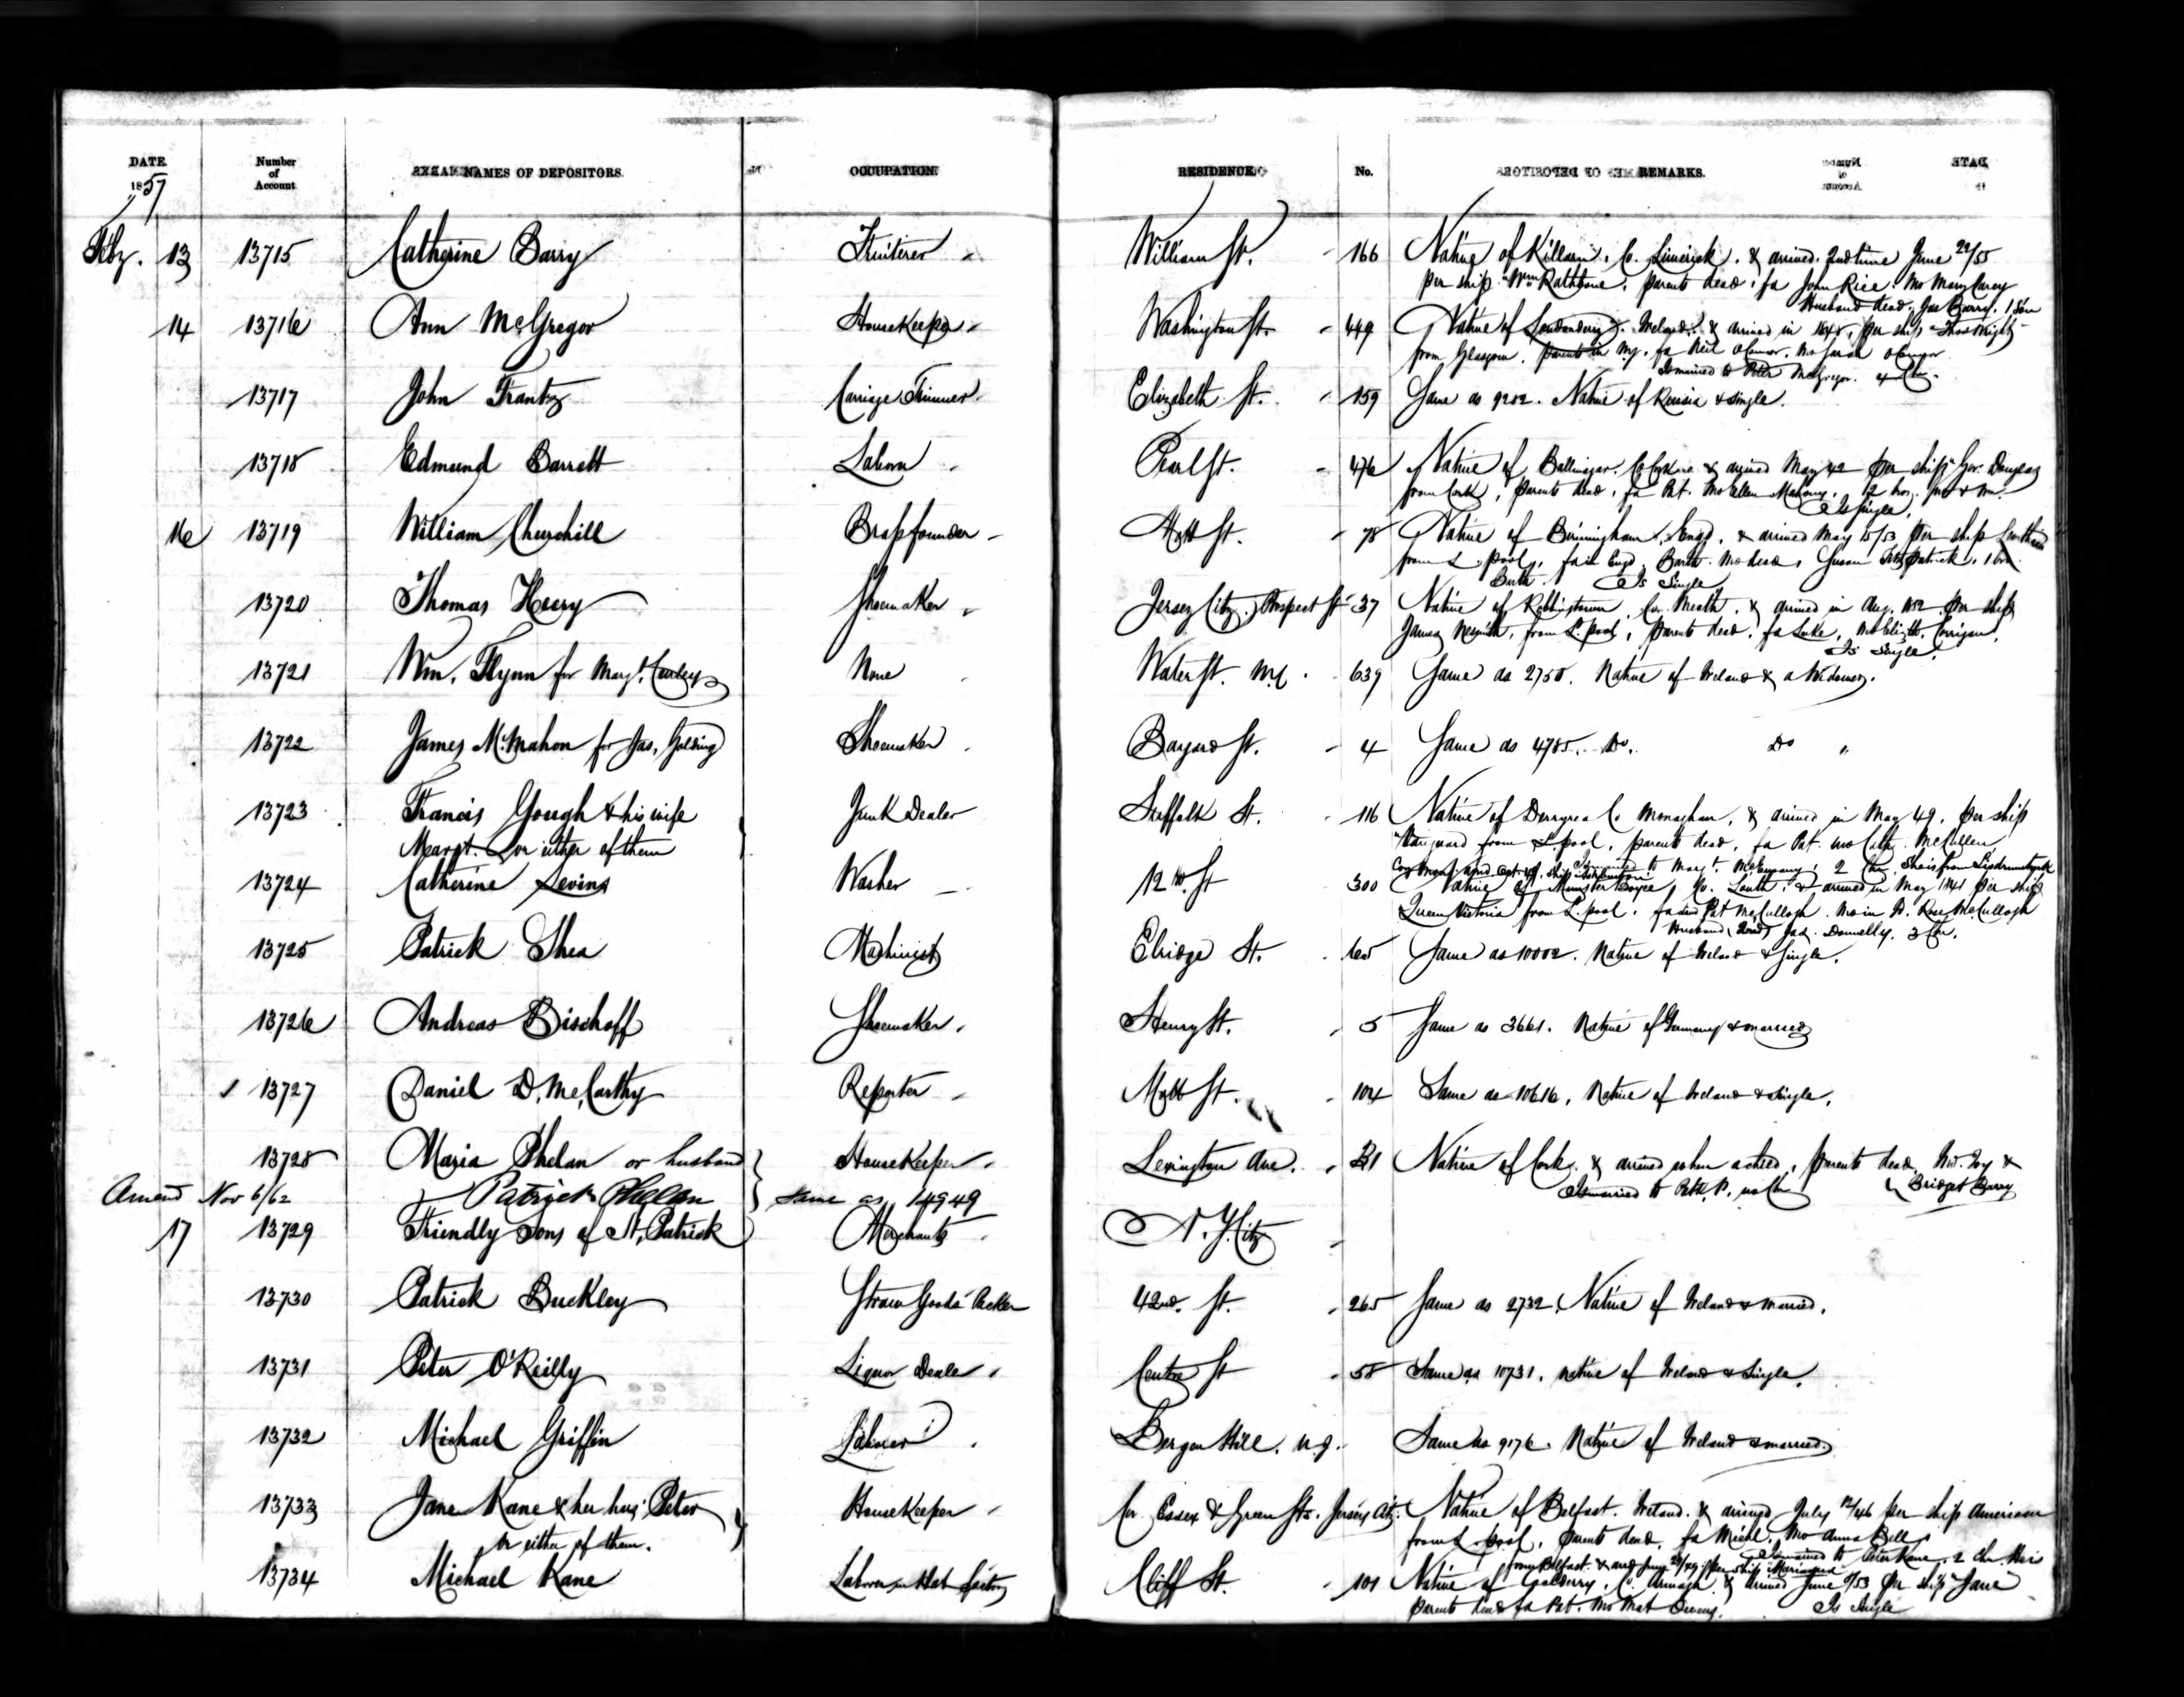 DATE. Number of Account NAMES OF DEPOSITORS. OCCUPATION. RESIDENCE. No. REMARKS.
1857
Feby. 13 13715 Catherine Barry Fruiterer William St. 166 Native of Co. Limerick. & arrived 2nd time June 22/55
per ship "Wm Rathbone, parents dead, fa John Rice. Mo Mary Carey
Husband dead, Jas Barry. 1 Son
14 13716 Ann McGregor HouseKeeper Washington St. 449 Native of Londonderry. Ireland. & arrived in 1848, per ship "Thos Wright"
from Glasgow. parents in fa Neil OConnor. Mo Sarah OConnor
Is married to Peter McGregor. 4 Chn.
13717 John Frantz Carriage Trimmer Elizabeth St. 159 Same as 9202. Native of & single.
13718 Edmund Barrett Laborer Pearl St. 476 Native of Co Cork & arrived May 42 per ship "Gov. Douglas
from Cork, parents dead, fa Pat. Mo Ellen Mahony. 2 bros. Jno & Wm.
Is single.
16 13719 William Churchill Brassfounder Mott St. 78 Native of Birmingham, Engd. & arrived May 15/53 per ship
from L.pool, fa in Engd. Barth. Mo dead, Susan Fitzpatrick, 1 bro.
Barth. Is Single
13720 Thomas Henry Shoemaker Jersey City, Prospect St 37 Native of Co. Meath. & arrived in Aug. 1852 per ship
James Nesmith, from L.pool, parents dead, fa Luke, Mo Elizth. Corrigan.
Is single.
13721 Wm. Flynn for Margt. Curley None Water St. 639 Same as 2750. Native of Ireland & a Widower.
13722 James McMahon for Jas. Golding Shoemaker Bayard St. 4 Same as 4785. Do. Do "
13723 Francis Gough & his wife Junk Dealer Suffolk St. 116 Native of Co Monaghan, & arrived in May 49, per ship
Margt. or either of them "Vanguard from L.pool, parents dead, fa Pat. Mo Cath. McCullen
Is married to Margt. 2 Chn, She is from
13724 Catherine Levins Washer 12th St 300 Native of Co. Louth. & arrived in May 1841 per ship
Queen Victoria from L.pool. fa dead Pat McCullogh. Mo in Rose McCullogh
Husband (dead) Jas. Donnelly. 3 Chn.
13725 Patrick Shea Machinist Elridge St. 65 Same as 10002. Native of Ireland & Single.
13726 Andreas Bischoff Shoemaker Henry St. 5 Same as 3661. Native of Germany & married
13727 Daniel D. McCarthy Reporter Mott St. 104 Same as 10616, Native of Ireland & single.
13728 Maria Phelan or husband HouseKeeper Lexington Ave. Native of Cork. & arrived when a child, parents dead,
Is married to Bridget Barry
Amend Nov 6/62 Patrick Phelan Same as 14949
17 13729 Friendly Sons of St. Patrick Merchants N.Y. City
13730 Patrick Buckley Straw Goods Packer 42nd. St. 265 Same as 2732. Native of Ireland & married.
13731 Peter O'Reilly Liquor Dealer Centre St 58 Same as 10731. Native of Ireland & Single.
13732 Michael Griffin Laborer Bergen Hill. N.J. Same as 9176. Native of Ireland & married.
13733 Jane Kane & her hus: Peter HouseKeeper Cor Essex & Green Sts. Jersey City. Native of Belfast. Ireland. & arrived July 12/46 per ship American
or either of them. from L.pool, parents dead, fa Michl. Mo Anna Bell
Is married to Peter Kane. 2 Chn. He is
from Belfast & arrd June 29/49 per ship
13734 Michael Kane Laborer in Hat factory Cliff St. 101 Native of Co. Armagh. & arrived June 9/53 per ship "Jane"
parents dead fa Pat. Mo
Is Single